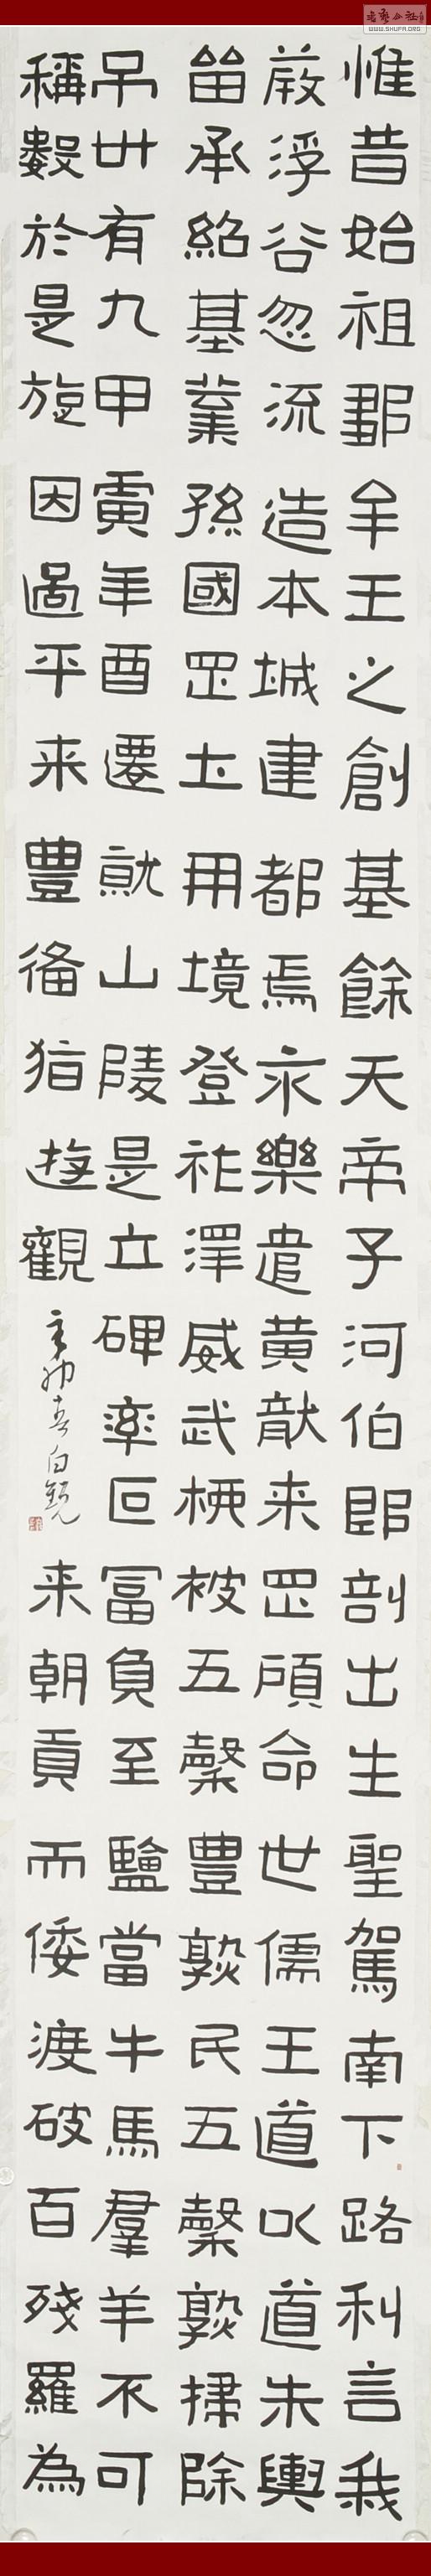 惟昔始祖鄒牟王之創基餘天帝子河伯郎剖出生聖駕南下路利言我
葭浮谷忽流造本城建都焉永樂遣黄来罡頋命世儒王道以道朱輿
畱承紹基業孫國罡土用境登祚澤威武柄被五穀豊孰民五穀孰掃除
吊卅有九甲寅年酉遷就山陵是立碑率叵冨負至鹽當牛馬羣羊不可
稱數於是旋因過平来豊備猶遊觀
辛卯春白
来朝貢而倭渡破百殘羅為
書藝公社
WWW.SHUFA.ORG